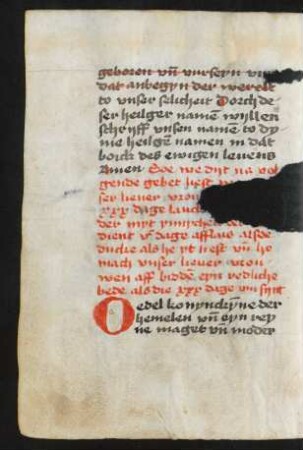 geboren vn̄ vurseyn
dat anbegyn der werelt
to unser selicheit Dorch de
ser heilger namē wyllen
schriff unsen name to dy
nie heilgē namen in dat
boick des ewigen levens
Amen Soe we dyt na vol
gende gebet liest
ser liever vrou
xxx dage lanck
der myt ynnyche
dient v dage afflaes alsoe
ducke als he yt liest vn̄ he
mach unser liever vrou
wen aff biddē eyn redliche
bede als die xxx dage uyt synt
Oedel konynckyne der
hemelen vn̄ eyn rey
ne maget vn̄ moder